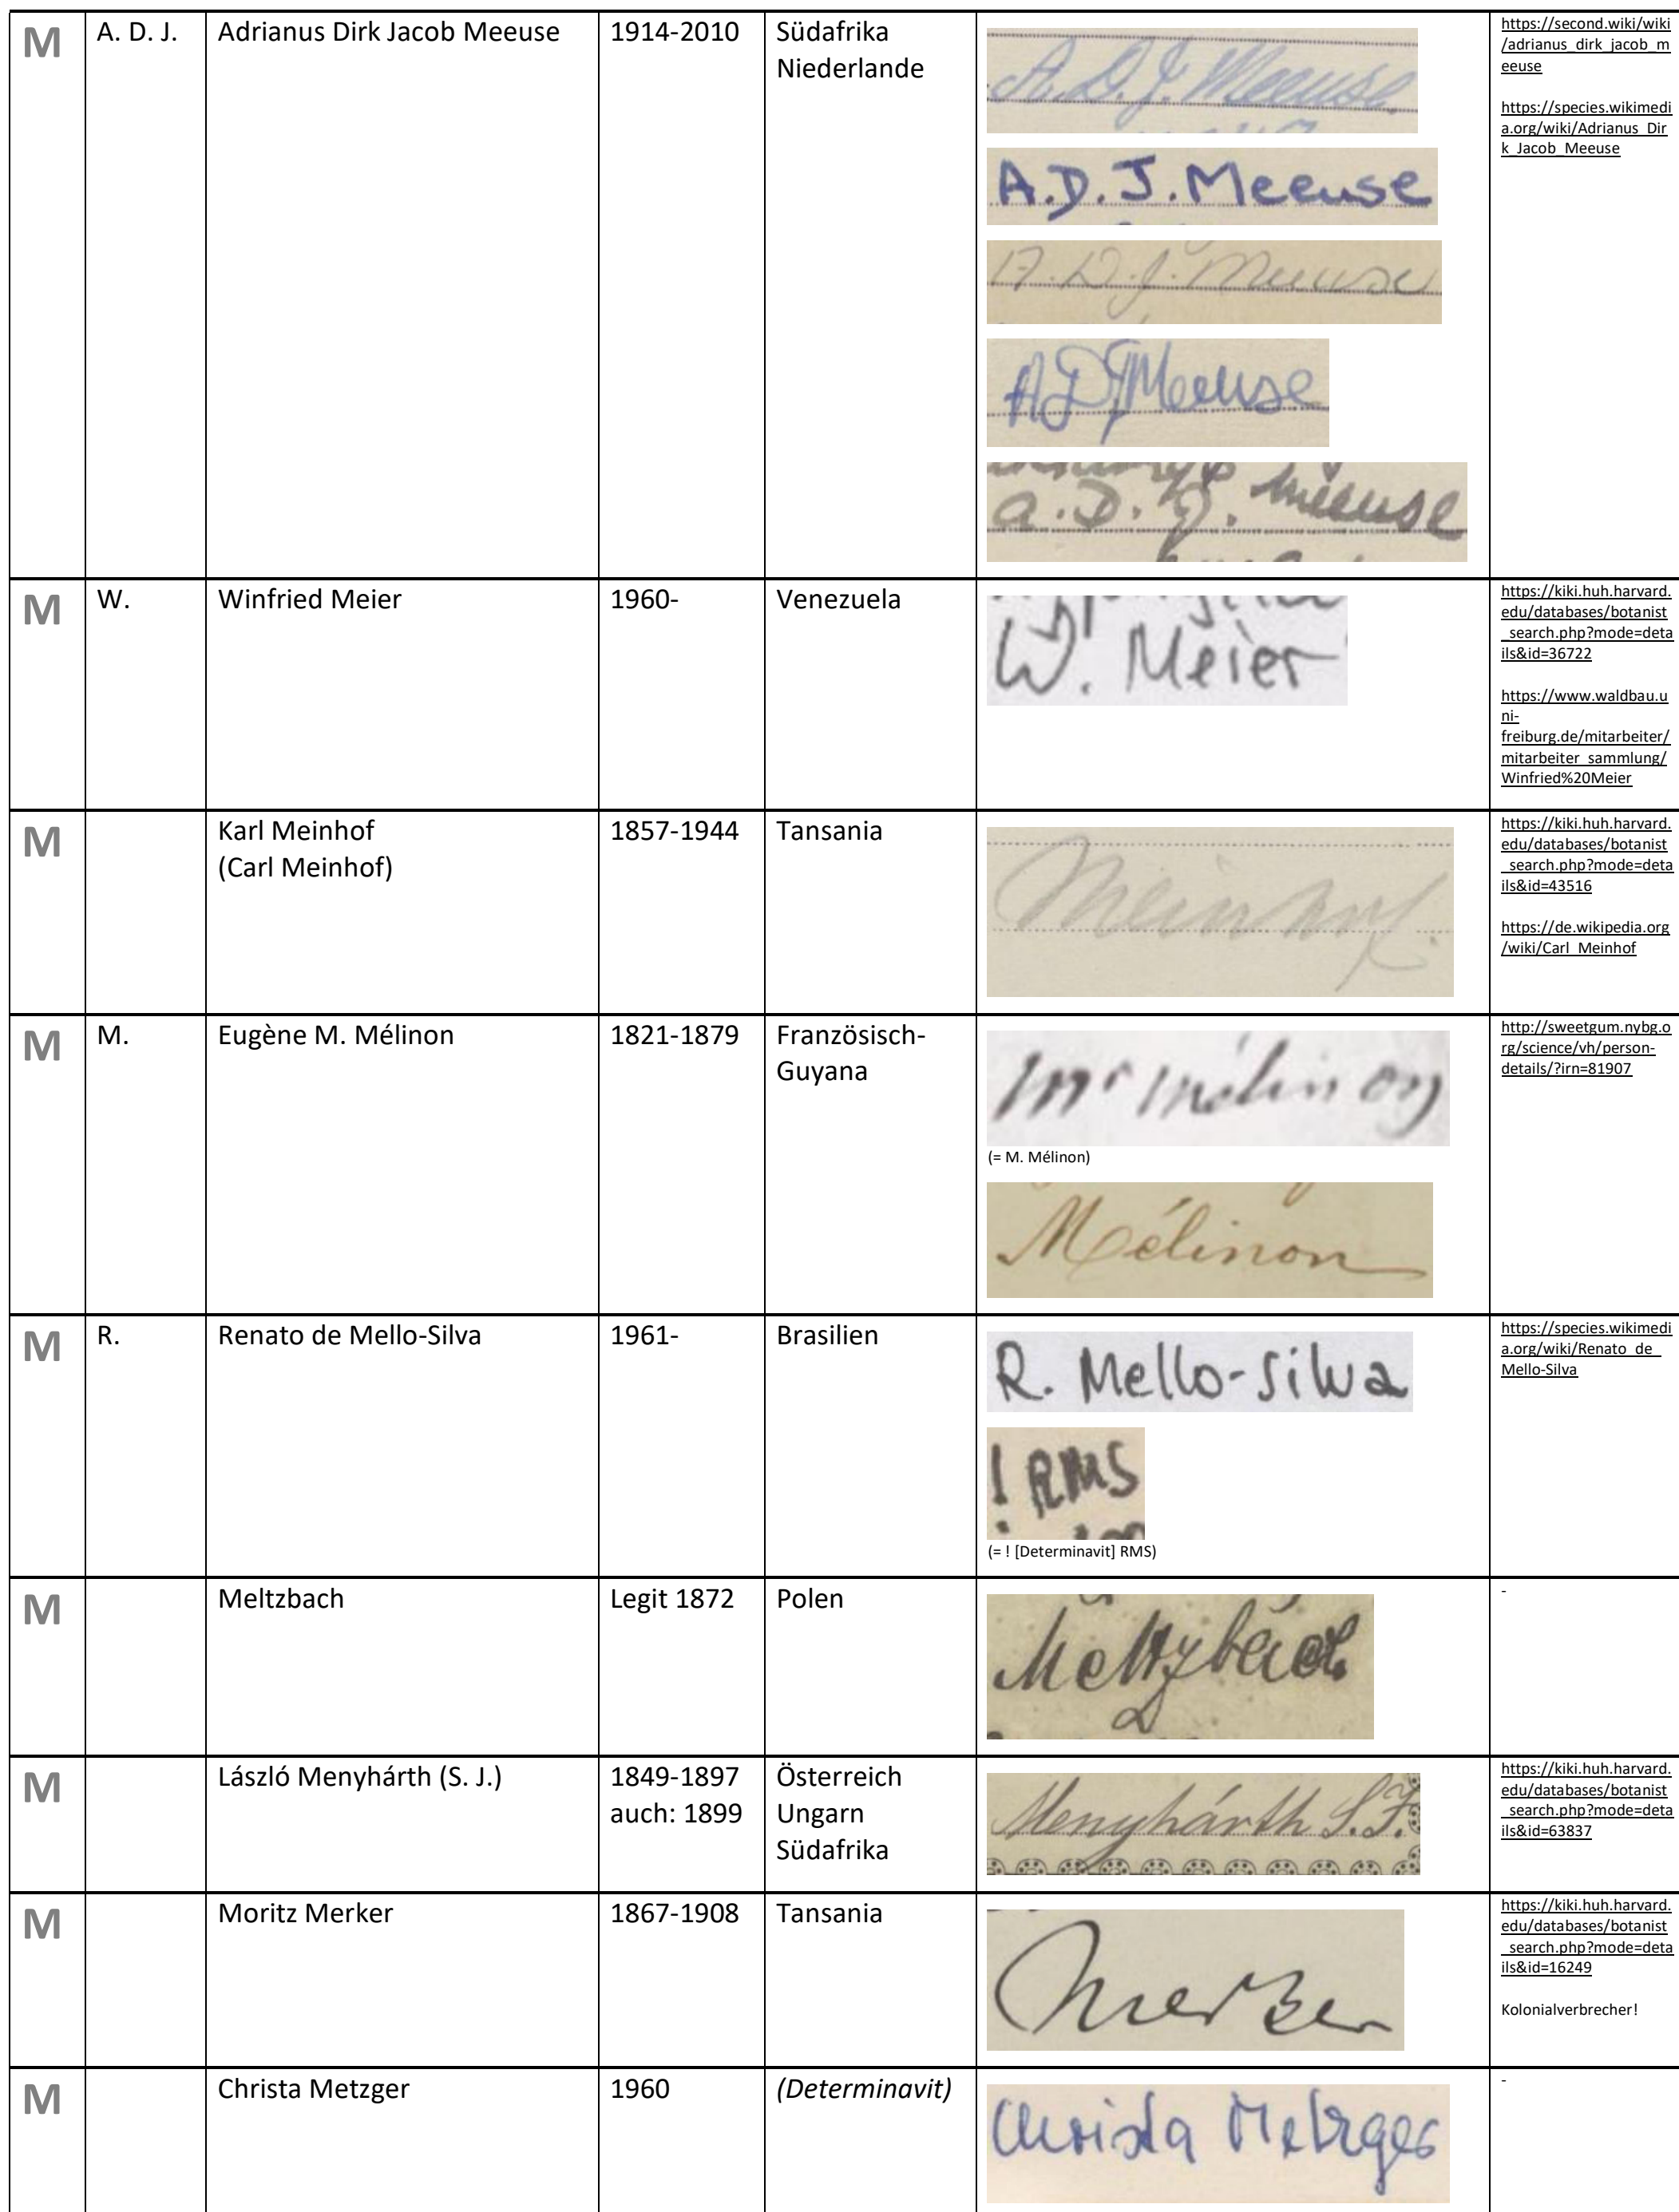 M A. D. J. Adrianus Dirk Jacob Meeuse 1914-2010 Südafrika
Niederlande
A. D. J. Meeuse
A.D.J. Meeuse
A. D. J. Meeuse
ADJMeeuse
a. D. J. Meeuse
https://second.wiki/wiki
/adrianus_dirk_jacob_m
eeuse
https://species.wikimedi
a.org/wiki/Adrianus_Dir
k_Jacob_Meeuse
M W. Winfried Meier 1960- Venezuela
W. Meier
https://kiki.huh.harvard.
edu/databases/botanist
_search.php?mode=deta
ils&id=36722
https://www.waldbau.u
ni-
freiburg.de/mitarbeiter/
mitarbeiter_sammlung/
Winfried%20Meier
M Karl Meinhof 1857-1944 Tansania
(Carl Meinhof)
Meinhof.
https://kiki.huh.harvard.
edu/databases/botanist
_search.php?mode=deta
ils&id=43516
https://de.wikipedia.org
/wiki/Carl_Meinhof
M M. Eugène M. Mélinon 1821-1879 Französisch-
Guyana
Mr Mélinon
(= M. Mélinon)
Mélinon
http://sweetgum.nybg.o
rg/science/vh/person-
details/?irn=81907
M R. Renato de Mello-Silva 1961- Brasilien
R. Mello-Silva
! RMS
(= ! [Determinavit] RMS)
https://species.wikimedi
a.org/wiki/Renato_de_
Mello-Silva
M Meltzbach Legit 1872 Polen
Meltzbach
-
M László Menyhárth (S. J.) 1849-1897 Österreich
auch: 1899 Ungarn
Südafrika
Menyhárth S.J.
https://kiki.huh.harvard.
edu/databases/botanist
_search.php?mode=deta
ils&id=63837
M Moritz Merker 1867-1908 Tansania
Merker
https://kiki.huh.harvard.
edu/databases/botanist
_search.php?mode=deta
ils&id=16249
Kolonialverbrecher!
M Christa Metzger 1960 (Determinavit)
Christa Metzger
-